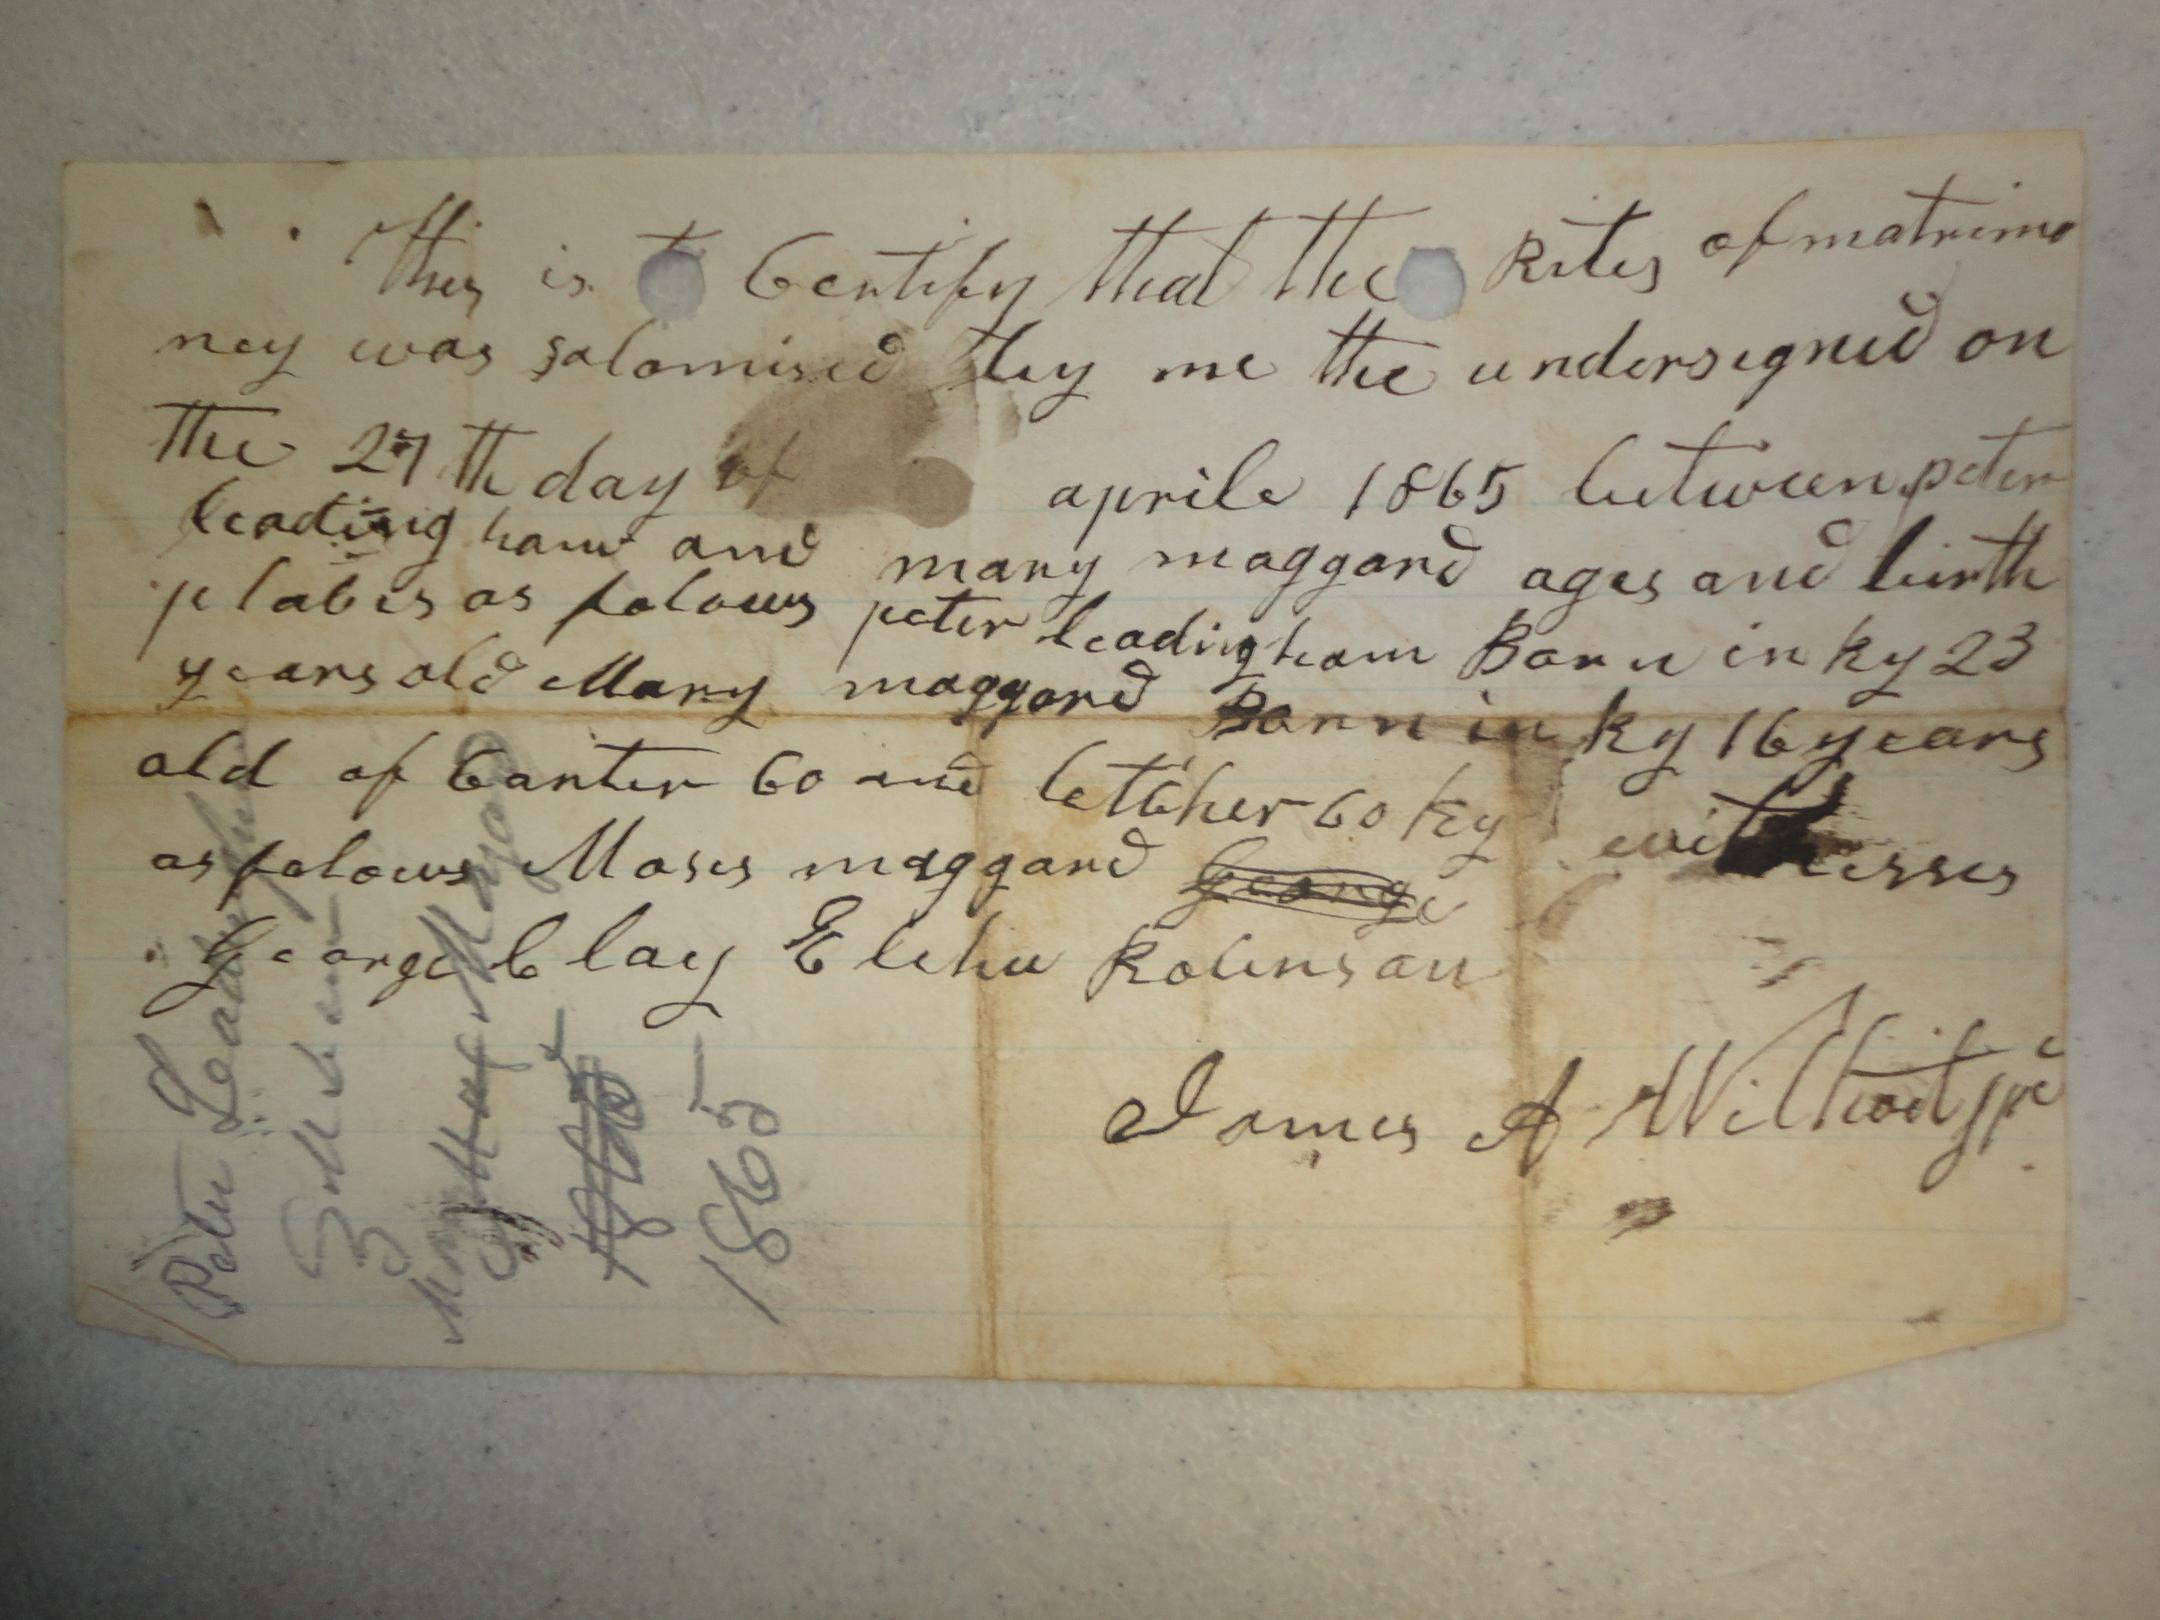 This is to Certify that the Rites of matrimo
ney was solomised by me the undersigned on
the 27th day of aprile 1865 between peter
leadingham and mary maggard ages and birth
places as folows peter leadingham Born in ky 23
years old Mary maggard Born in ky 16 years
old of Carter Co and letcher Co ky witnesses
as folows Moses maggard George
George Clay Elihu Robinson
James A Wilhoit jpc
Peter
1865